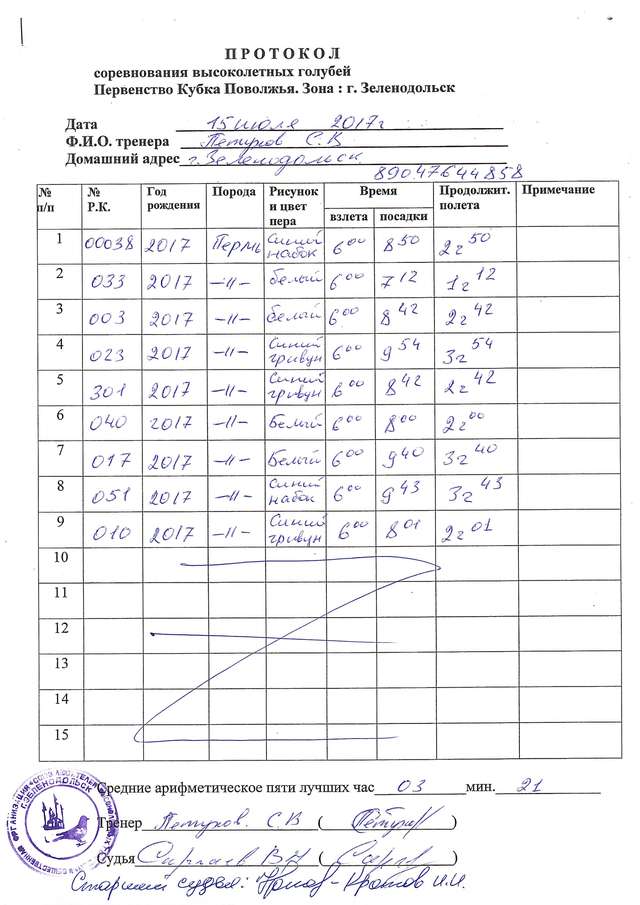 ПРОТОКОЛ
соревнования высоколетных голубей
Первенство Кубка Поволжья. Зона : г. Зеленодольск
Дата 15 июля 2017г
Ф.И.О. тренера Петухов С.В
Домашний адрес г. Зеленодольск
89047644858
№ п/п № Р.К. Год рождения Порода Рисунок и цвет пера Время взлета посадки Продолжит. полета Примечание
1 00038 2017 Пермь Синий набок 6 00 8 50 2г 50
2 033 2017 –//– белый 6 00 7 12 1г 12
3 003 2017 –//– белый 6 00 8 42 2г 42
4 023 2017 –//– Синий гривун 6 00 9 54 3г 54
5 301 2017 –//– Синий гривун 6 00 8 42 2г 42
6 040 2017 –//– Белый 6 00 8 00 2г 00
7 017 2017 –//– Белый 6 00 9 40 3г 40
8 051 2017 –//– Синий набок 6 00 9 43 3г 43
9 010 2017 –//– Синий гривун 6 00 8 01 2г 01
10
11
12
13
14
15
Средние арифметическое пяти лучших час 03 мин. 21
Тренер Петухов. С.В ( )
Судья ВН ( )
Старший судья: И.И.
Г.ЗЕЛЕНОДОЛЬСК